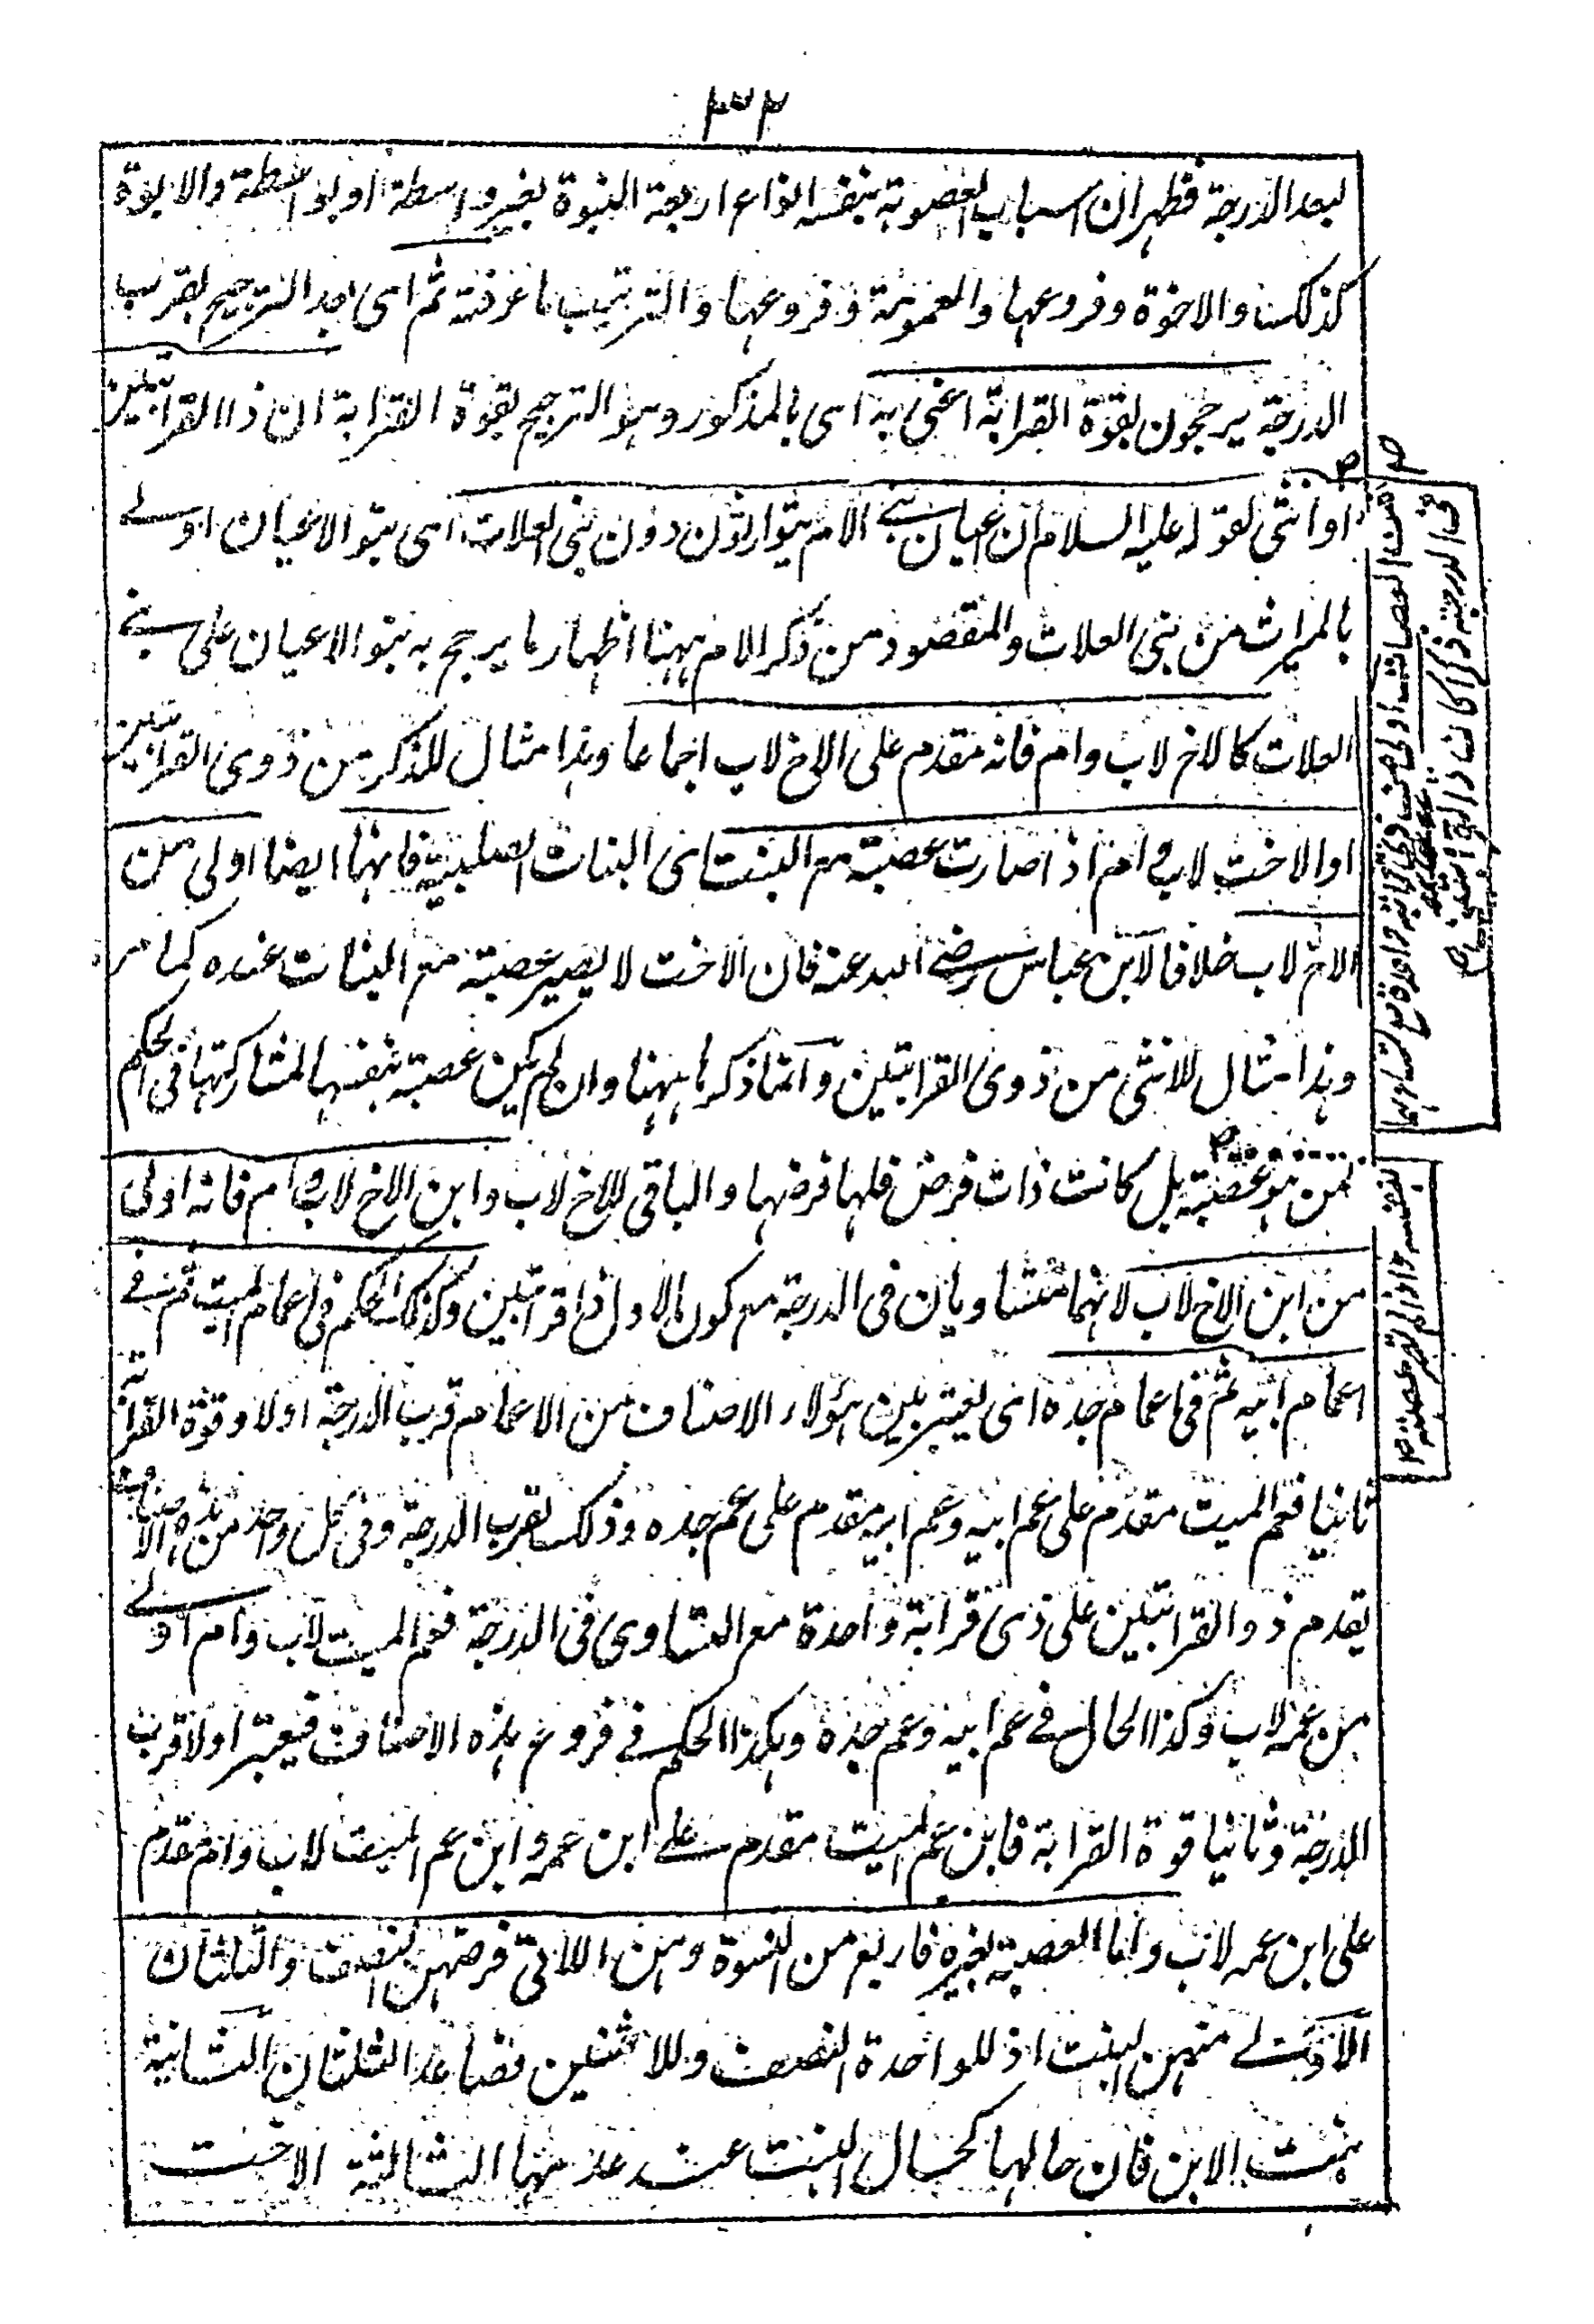 ٣٣٢
لبعد الدرجة فظهر ان اسباب العصوبة بنفسه انواع اربعة البنوة بغير واسطة او بواسطة والابوة
كذلك والاخوة وفروعها والعمومة وفروعها والترتيب ما عرفته ثم اى بعد الترجيح بقرب
الدرجة يرجحون بقوة القرابة اعنى به اى بالمذكور وهو الترجيح بقوة القرابة ان ذا القرابتين
او انثى لقوله عليه السلام ان اعيان بنى الام يتوارثون دون بنى العلات اى بنو الاعيان اولى
بالميراث من بنى العلات والمقصود من ذكر الام ههنا اظهار ما يرجح به بنو الاعيان على بنى
العلات كالاخ لاب وام فانه مقدم على الاخ لاب اجماعا وهذا مثال للذكر من ذوى القرابتين
او الاخت لاب وام اذا صارت عصبة مع البنت اى البنات الصلبية فانها ايضا اولى من
الاخ لاب خلافا لابن عباس رضى الله عنه فان الاخت لا يصير عصبة مع البنات عنده كما مر
وهذا مثال للانثى من ذوى القرابتين وانما ذكرها ههنا وان لم يكن عصبة بنفسها لمشاركتها فى الحكم
لمن هو عصبة بل كانت ذات فرض فلها فرضها والباقى للاخ لاب وابن الاخ لاب وام فانه اولى
من ابن الاخ لاب لانهما متساويان فى الدرجة مع كون الاول ذا قرابتين وكذلك الحكم فى اعمام الميت ثم فى
اعمام ابيه ثم فى اعمام جده اى يعتبر بين هؤلاء الاصناف من الاعمام قرب الدرجة اولا وقوة القرابة
ثانيا فعم الميت مقدم على عم ابيه وعم ابيه مقدم على عم جده وذلك لقرب الدرجة وفى كل واحد من هذه الاصناف
يقدم ذو القرابتين على ذى قرابة واحدة مع التساوى فى الدرجة فعم الميت لاب وام اولى
من عمه لاب وكذا الحال فى عم ابيه وعم جده وهكذا الحكم فى فروع هذه الاصناف فيعتبر اولا قرب
الدرجة وثانيا قوة القرابة فابن عم الميت مقدم على ابن عمه وابن عم الميت لاب وام مقدم
على ابن عمه لاب واما العصبة بغيره فاربع من النسوة وهن اللاتى فرضهن النصف والثلثان
الاولى منهن البنت اذ للواحدة النصف وللاثنتين فصاعدا الثلثان الثانية
بنت الابن فان حالها كحال البنت عند عدمها الثالثة الاخت
من العصبات اولى من ذى قرابة واحدة مع تساويهما
فى الدرجة ذكرا كان ذا القرابتين
بنفسه واذا لم تصر عصبة